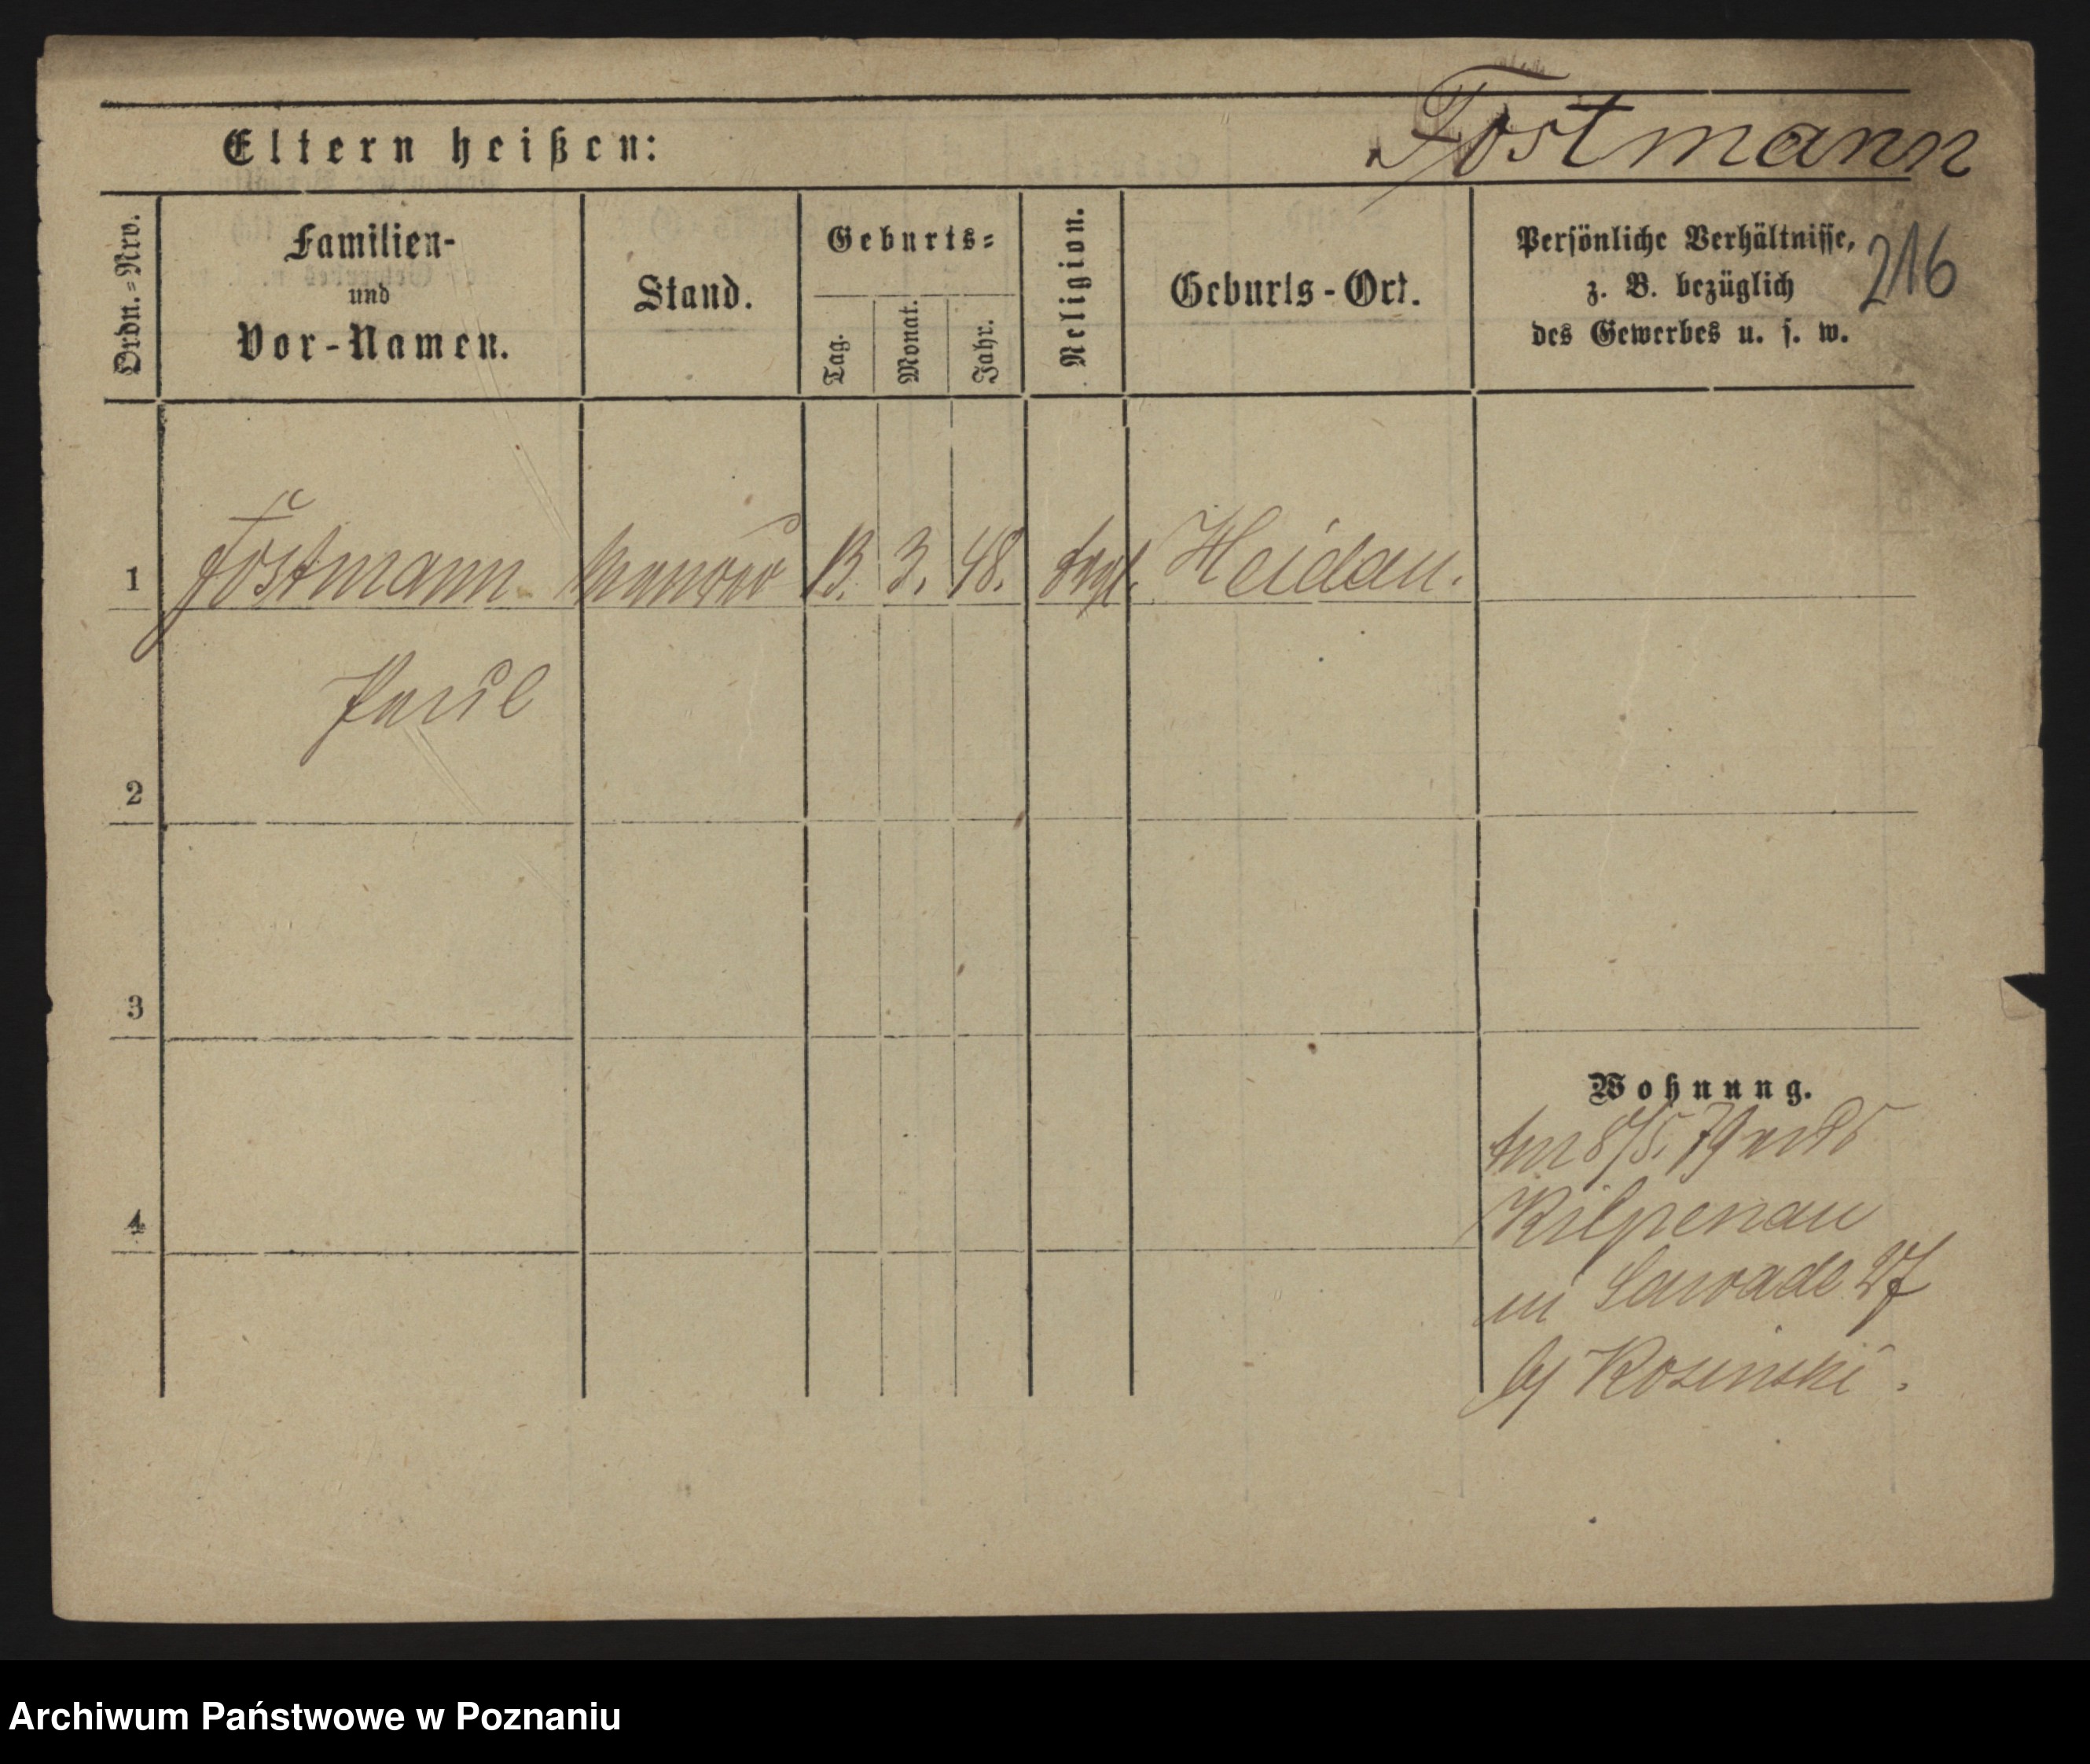 Eltern heißen:
Tostmann
216
Ordn.-Nro.
Familien-
und
Vor-Namen.
Stand.
Geburts-
Tag.
Monat.
Jahr.
Religion.
Geburts-Ort.
Persönliche Verhältnisse,
z. B. bezüglich
des Gewerbes u. s. w.
1 Tostmann 13. 3. 48. Heidau.
Paul
2
3
Wohnung.
8/5. 79
4
in Sawade 27
b/ Rosinski.
Archiwum Państwowe w Poznaniu